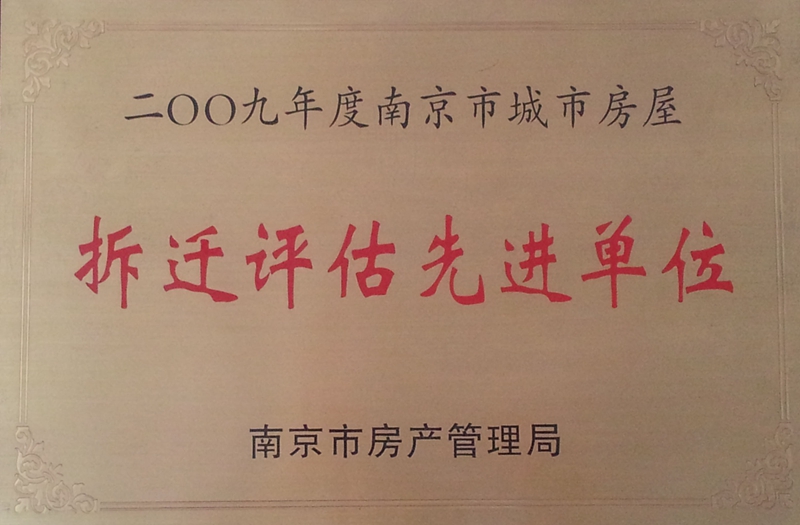 二〇〇九年度南京市城市房屋
拆迁评估先进单位
南京市房产管理局